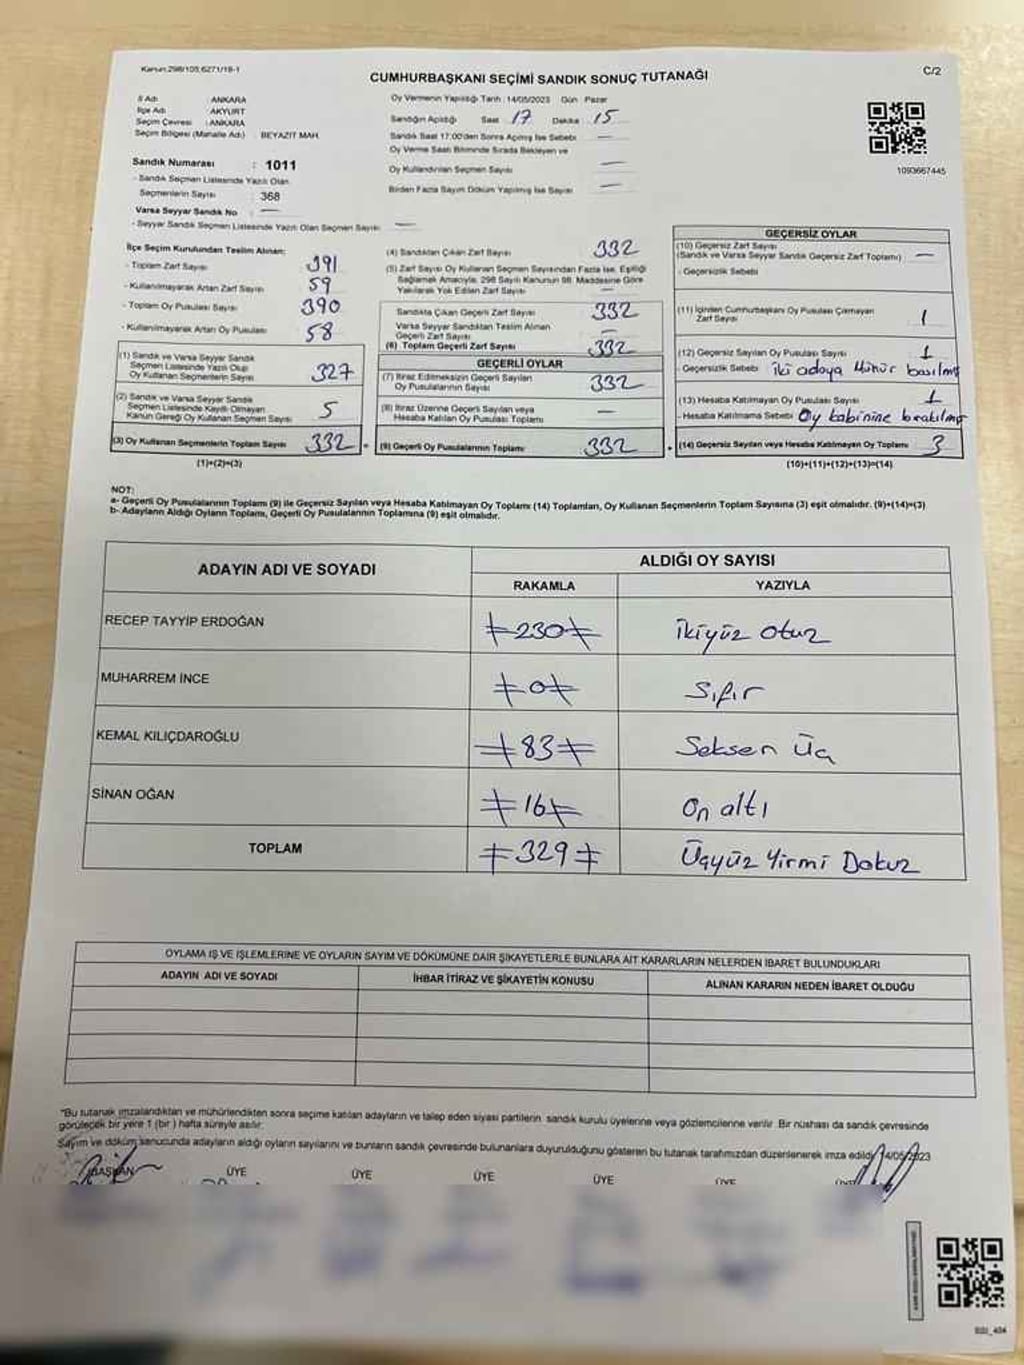 Kanun:298/105;6271/19-1
CUMHURBAŞKANI SEÇİMİ SANDIK SONUÇ TUTANAĞI
C/2
İl Adı ANKARA
İlçe Adı AKYURT
Seçim Çevresi : ANKARA
Seçim Bölgesi (Mahalle Adı) : BEYAZIT MAH.
Oy Vermenin Yapıldığı Tarih : 14/05/2023 Gün Pazar
Sandığın Açıldığı Saat 17 Dakika 15
Sandık Saat 17:00'den Sonra Açılmış İse Sebebi —
Oy Verme Saati Bitiminde Sırada Bekleyen ve
Oy Kullandırılan Seçmen Sayısı —
Birden Fazla Sayım Döküm Yapılmış İse Sayısı —
1093667445
Sandık Numarası : 1011
- Sandık Seçmen Listesinde Yazılı Olan
Seçmenlerin Sayısı : 368
Varsa Seyyar Sandık No : —
- Seyyar Sandık Seçmen Listesinde Yazılı Olan Seçmen Sayısı : —
İlçe Seçim Kurulundan Teslim Alınan:
- Toplam Zarf Sayısı 391
- Kullanılmayarak Artan Zarf Sayısı 59
- Toplam Oy Pusulası Sayısı 390
- Kullanılmayarak Artan Oy Pusulası 58
(1) Sandık ve Varsa Seyyar Sandık
Seçmen Listesinde Yazılı Olup
Oy Kullanan Seçmenlerin Sayısı 327
(2) Sandık ve Varsa Seyyar Sandık
Seçmen Listesinde Kayıtlı Olmayan
Kanun Gereği Oy Kullanan Seçmen Sayısı 5
(3) Oy Kullanan Seçmenlerin Toplam Sayısı 332
(1)+(2)=(3)
(4) Sandıktan Çıkan Zarf Sayısı 332
(5) Zarf Sayısı Oy Kullanan Seçmen Sayısından Fazla İse, Eşitliği
Sağlamak Amacıyla; 298 Sayılı Kanunun 98. Maddesine Göre
Yakılarak Yok Edilen Zarf Sayısı —
Sandıkta Çıkan Geçerli Zarf Sayısı 332
Varsa Seyyar Sandıktan Teslim Alınan
Geçerli Zarf Sayısı —
(6) Toplam Geçerli Zarf Sayısı 332
GEÇERLİ OYLAR
(7) İtiraz Edilmeksizin Geçerli Sayılan
Oy Pusulalarının Sayısı 332
(8) İtiraz Üzerine Geçerli Sayılan veya
Hesaba Katılan Oy Pusulası Toplamı —
(9) Geçerli Oy Pusulalarının Toplamı 332
GEÇERSİZ OYLAR
(10) Geçersiz Zarf Sayısı
(Sandık ve Varsa Seyyar Sandık Geçersiz Zarf Toplamı) —
- Geçersizlik Sebebi
(11) İçinden Cumhurbaşkanı Oy Pusulası Çıkmayan
Zarf Sayısı 1
(12) Geçersiz Sayılan Oy Pusulası Sayısı 1
- Geçersizlik Sebebi iki adaya Mühür basılmış
(13) Hesaba Katılmayan Oy Pusulası Sayısı 1
- Hesaba Katılmama Sebebi Oy kabinine bırakılmış
(14) Geçersiz Sayılan veya Hesaba Katılmayan Oy Toplamı 3
(10)+(11)+(12)+(13)=(14)
NOT:
a- Geçerli Oy Pusulalarının Toplamı (9) ile Geçersiz Sayılan veya Hesaba Katılmayan Oy Toplamı (14) Toplamları, Oy Kullanan Seçmenlerin Toplam Sayısına (3) eşit olmalıdır. (9)+(14)=(3)
b- Adayların Aldığı Oyların Toplamı, Geçerli Oy Pusulalarının Toplamına (9) eşit olmalıdır.
ADAYIN ADI VE SOYADI
ALDIĞI OY SAYISI
RAKAMLA YAZIYLA
RECEP TAYYİP ERDOĞAN 230 İkiyüz otuz
MUHARREM İNCE 0 Sıfır
KEMAL KILIÇDAROĞLU 83 Seksen Üç
SİNAN OĞAN 16 On altı
TOPLAM 329 Üçyüz Yirmi Dokuz
OYLAMA İŞ VE İŞLEMLERİNE VE OYLARIN SAYIM VE DÖKÜMÜNE DAİR ŞİKAYETLERLE BUNLARA AİT KARARLARIN NELERDEN İBARET BULUNDUKLARI
ADAYIN ADI VE SOYADI İHBAR İTİRAZ VE ŞİKAYETİN KONUSU ALINAN KARARIN NEDEN İBARET OLDUĞU
*Bu tutanak imzalandıktan ve mühürlendikten sonra seçime katılan adayların ve talep eden siyasi partilerin sandık kurulu üyelerine veya gözlemcilerine verilir. Bir nüshası da sandık çevresinde
görülecek bir yere 1 (bir) hafta süreyle asılır.
Sayım ve döküm sonucunda adayların aldığı oyların sayılarını ve bunların sandık çevresinde bulunanlara duyurulduğunu gösteren bu tutanak tarafımızdan düzenlenerek imza edildi. 14/05/2023
BAŞKAN ÜYE ÜYE ÜYE ÜYE ÜYE ÜYE